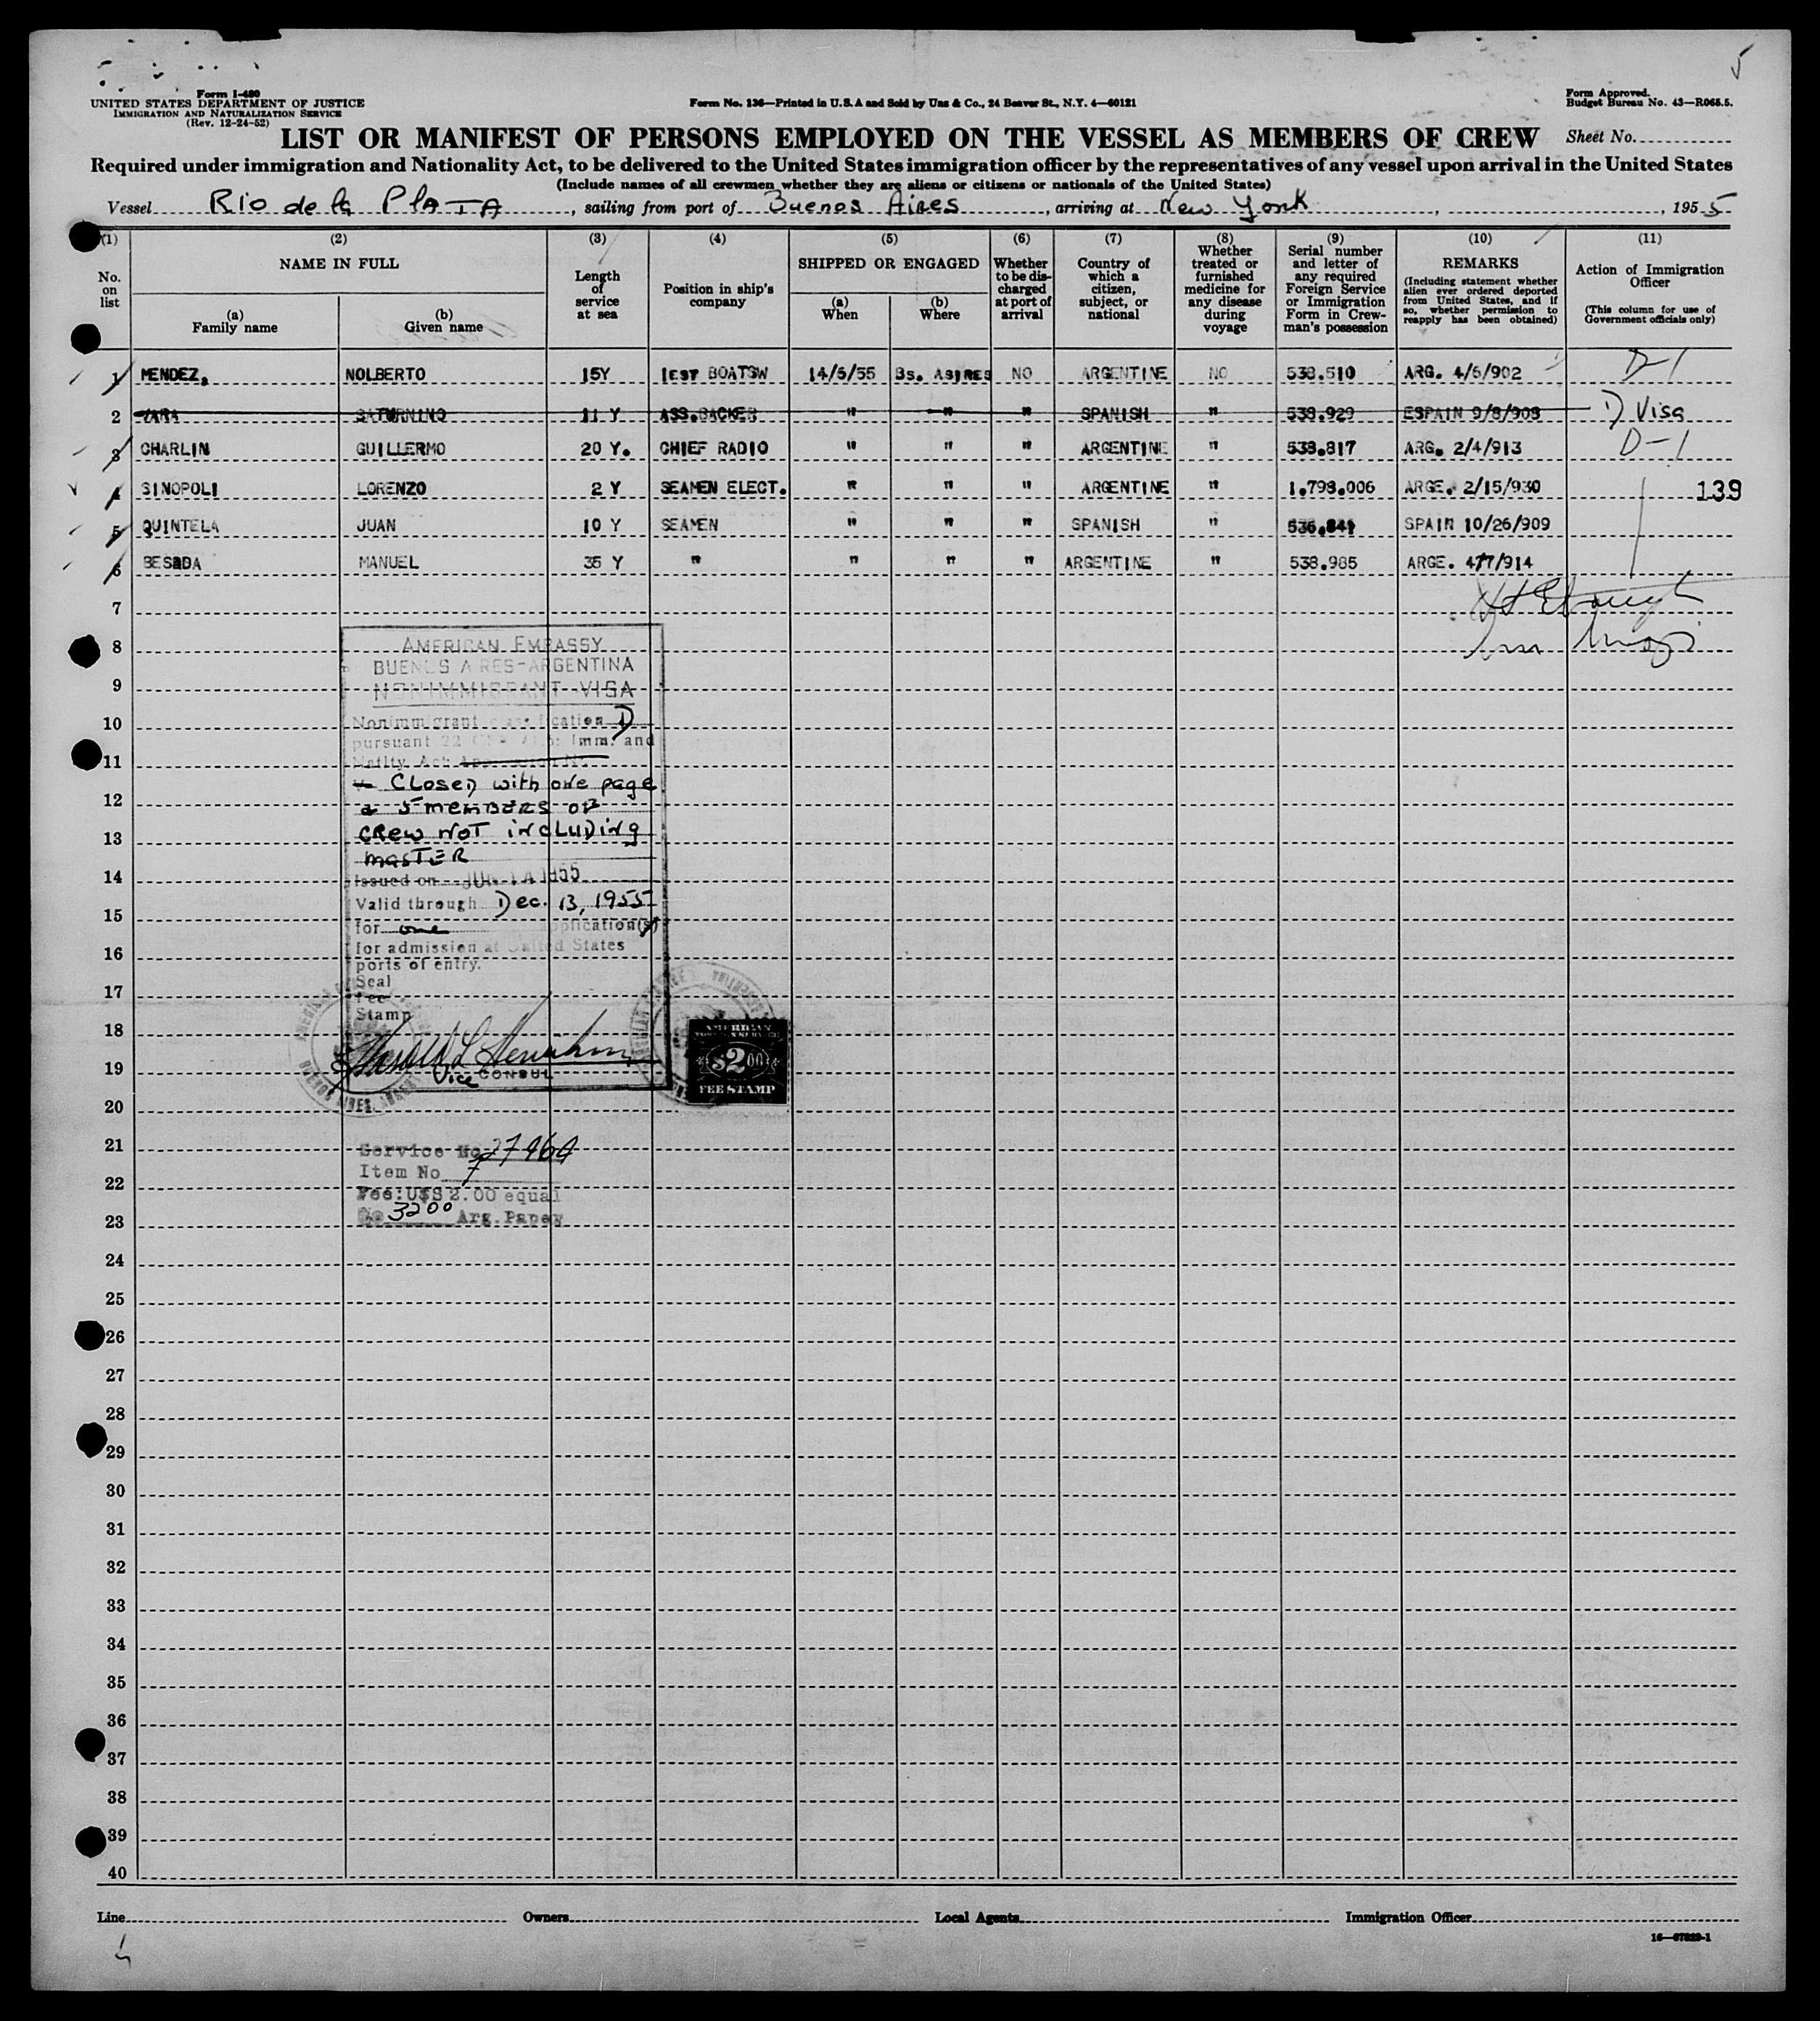 5
Form I-480
UNITED STATES DEPARTMENT OF JUSTICE
IMMIGRATION AND NATURALIZATION SERVICE
(Rev. 12-24-52)
Form No. 136—Printed in U.S.A and Sold by Unz & Co., 24 Beaver St., N.Y. 4—60121
Form Approved.
Budget Bureau No. 43—R065.5.
LIST OR MANIFEST OF PERSONS EMPLOYED ON THE VESSEL AS MEMBERS OF CREW
Sheet No.
Required under immigration and Nationality Act, to be delivered to the United States immigration officer by the representatives of any vessel upon arrival in the United States
(Include names of all crewmen whether they are aliens or citizens or nationals of the United States)
Vessel Rio de la PlATA, sailing from port of Buenos Aires, arriving at New York, , 1955
(1) No. on list
(2) NAME IN FULL
(a) Family name
(b) Given name
(3) Length of service at sea
(4) Position in ship's company
(5) SHIPPED OR ENGAGED
(a) When
(b) Where
(6) Whether to be discharged at port of arrival
(7) Country of which a citizen, subject, or national
(8) Whether treated or furnished medicine for any disease during voyage
(9) Serial number and letter of any required Foreign Service or Immigration Form in Crewman's possession
(10) REMARKS (Including statement whether alien ever ordered deported from United States, and if so, whether permission to reapply has been obtained)
(11) Action of Immigration Officer (This column for use of Government officials only)
1 MENDEZ, NOLBERTO 15Y 1EST BOATSW 14/6/55 Bs. ASIRES NO ARGENTINE NO 538.510 ARG. 4/6/902 D-1
2 YARA SATURNINO 11 Y ASS.BACKER " " " SPANISH " 538.929 ESPAIN 9/8/908 D Visa
3 CHARLIN GUILLERMO 20 Y. CHIEF RADIO " " " ARGENTINE " 538.817 ARG. 2/4/913 D-1
4 SINOPOLI LORENZO 2 Y SEAMEN ELECT. " " " ARGENTINE " 1.798.006 ARGE. 2/15/930 139
5 QUINTELA JUAN 10 Y SEAMEN " " " SPANISH " 536.841 SPAIN 10/26/909
6 BESADA MANUEL 35 Y " " " " ARGENTINE " 538.985 ARGE. 4/7/914
7
8
9
10
11
12
13
14
15
16
17
18
19
20
21
22
23
24
25
26
27
28
29
30
31
32
33
34
35
36
37
38
39
40
AMERICAN EMBASSY
BUENOS AIRES-ARGENTINA
NONIMMIGRANT VISA
Nonimmigrant classification D
pursuant 22 Imm. and
Natlty. Act
Closed with one page
& 5 members of
crew not including
master
Issued on JUN 14 1955
Valid through Dec. 13, 1955
for one application(s)
for admission at United States
ports of entry.
Seal
Fee
Stamp
Vice CONSUL
AMERICAN
FOREIGN SERVICE
$2.00
FEE STAMP
Service No. 27464
Item No. 7
Fee: U$S 2.00 equal
3200 Arg. Paper
Line
Owners
Local Agents
Immigration Officer
16—67829-1